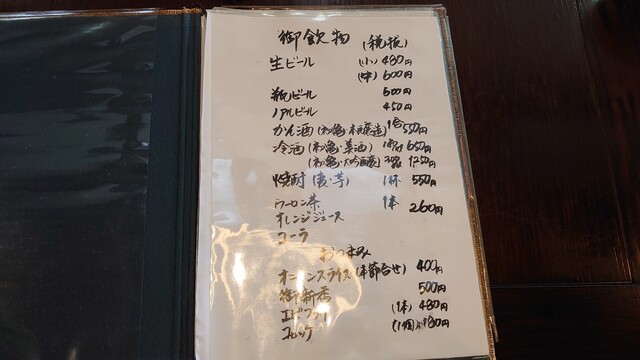 御飲物 (税抜)
生ビール (小) 480円
(中) 600円
瓶ビール 600円
ノアルビール 450円
かん酒 (初亀・本醸造) 1合 550円
冷酒 (初亀・菜酒) 650円
(初亀・大吟醸) 1250円
焼酎 (麦・芋) 1杯 550円
ウーロン茶 1本 260円
オレンジジュース
コーラ
おつまみ
オニオンスライス (本節合せ) 400円
御新香 500円
エビフライ (1本) 480円
コロッケ (1個) 180円